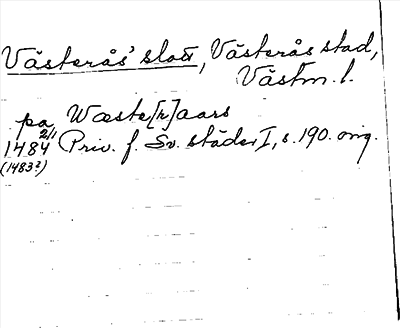 Västerås' slott, Västerås stad,
Västm. l.
pa Wæste[r]aars
1484 2/1 Priv. f. Sv. städer I, s. 190. orig.
(1483?)